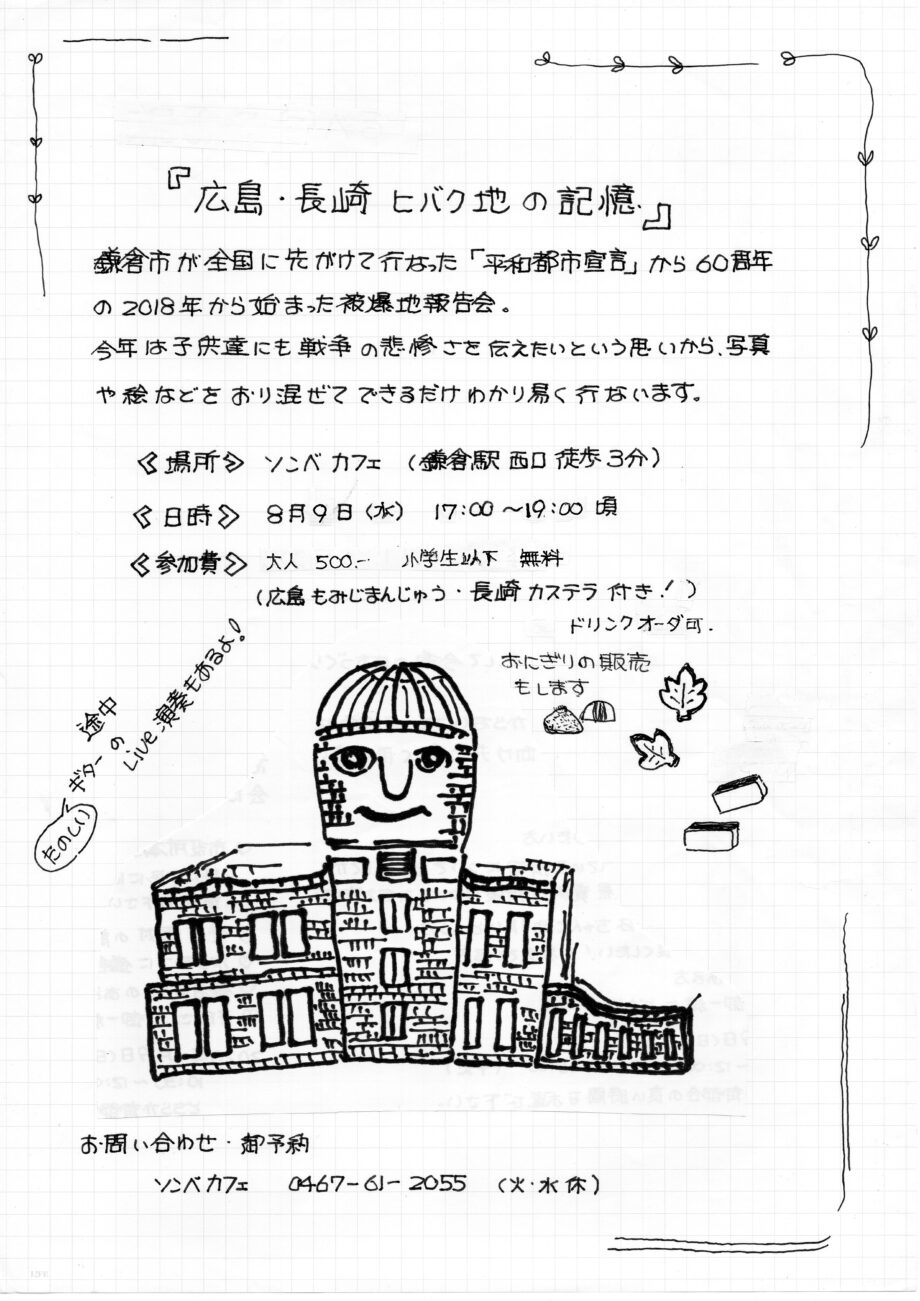 『広島・長崎 ヒバク地の記憶』
鎌倉市が全国に先がけて行なった「平和都市宣言」から60周年
の2018年から始まった被爆地報告会。
今年は子供達にも戦争の悲惨さを伝えたいという思いから、写真
や絵などをおり混ぜてできるだけわかり易く行ないます。
《場所》 ソンベカフェ (鎌倉駅西口徒歩3分)
《日時》 8月9日(水) 17:00〜19:00頃
《参加費》 大人 500.- 小学生以下 無料
(広島もみじまんじゅう・長崎カステラ付き！)
ドリンクオーダ可.
おにぎりの販売
もします
途中
たのしい ギターの
Live演奏もあるよ！
お問い合わせ・御予約
ソンベカフェ 0467-61-2055 (火・水休)